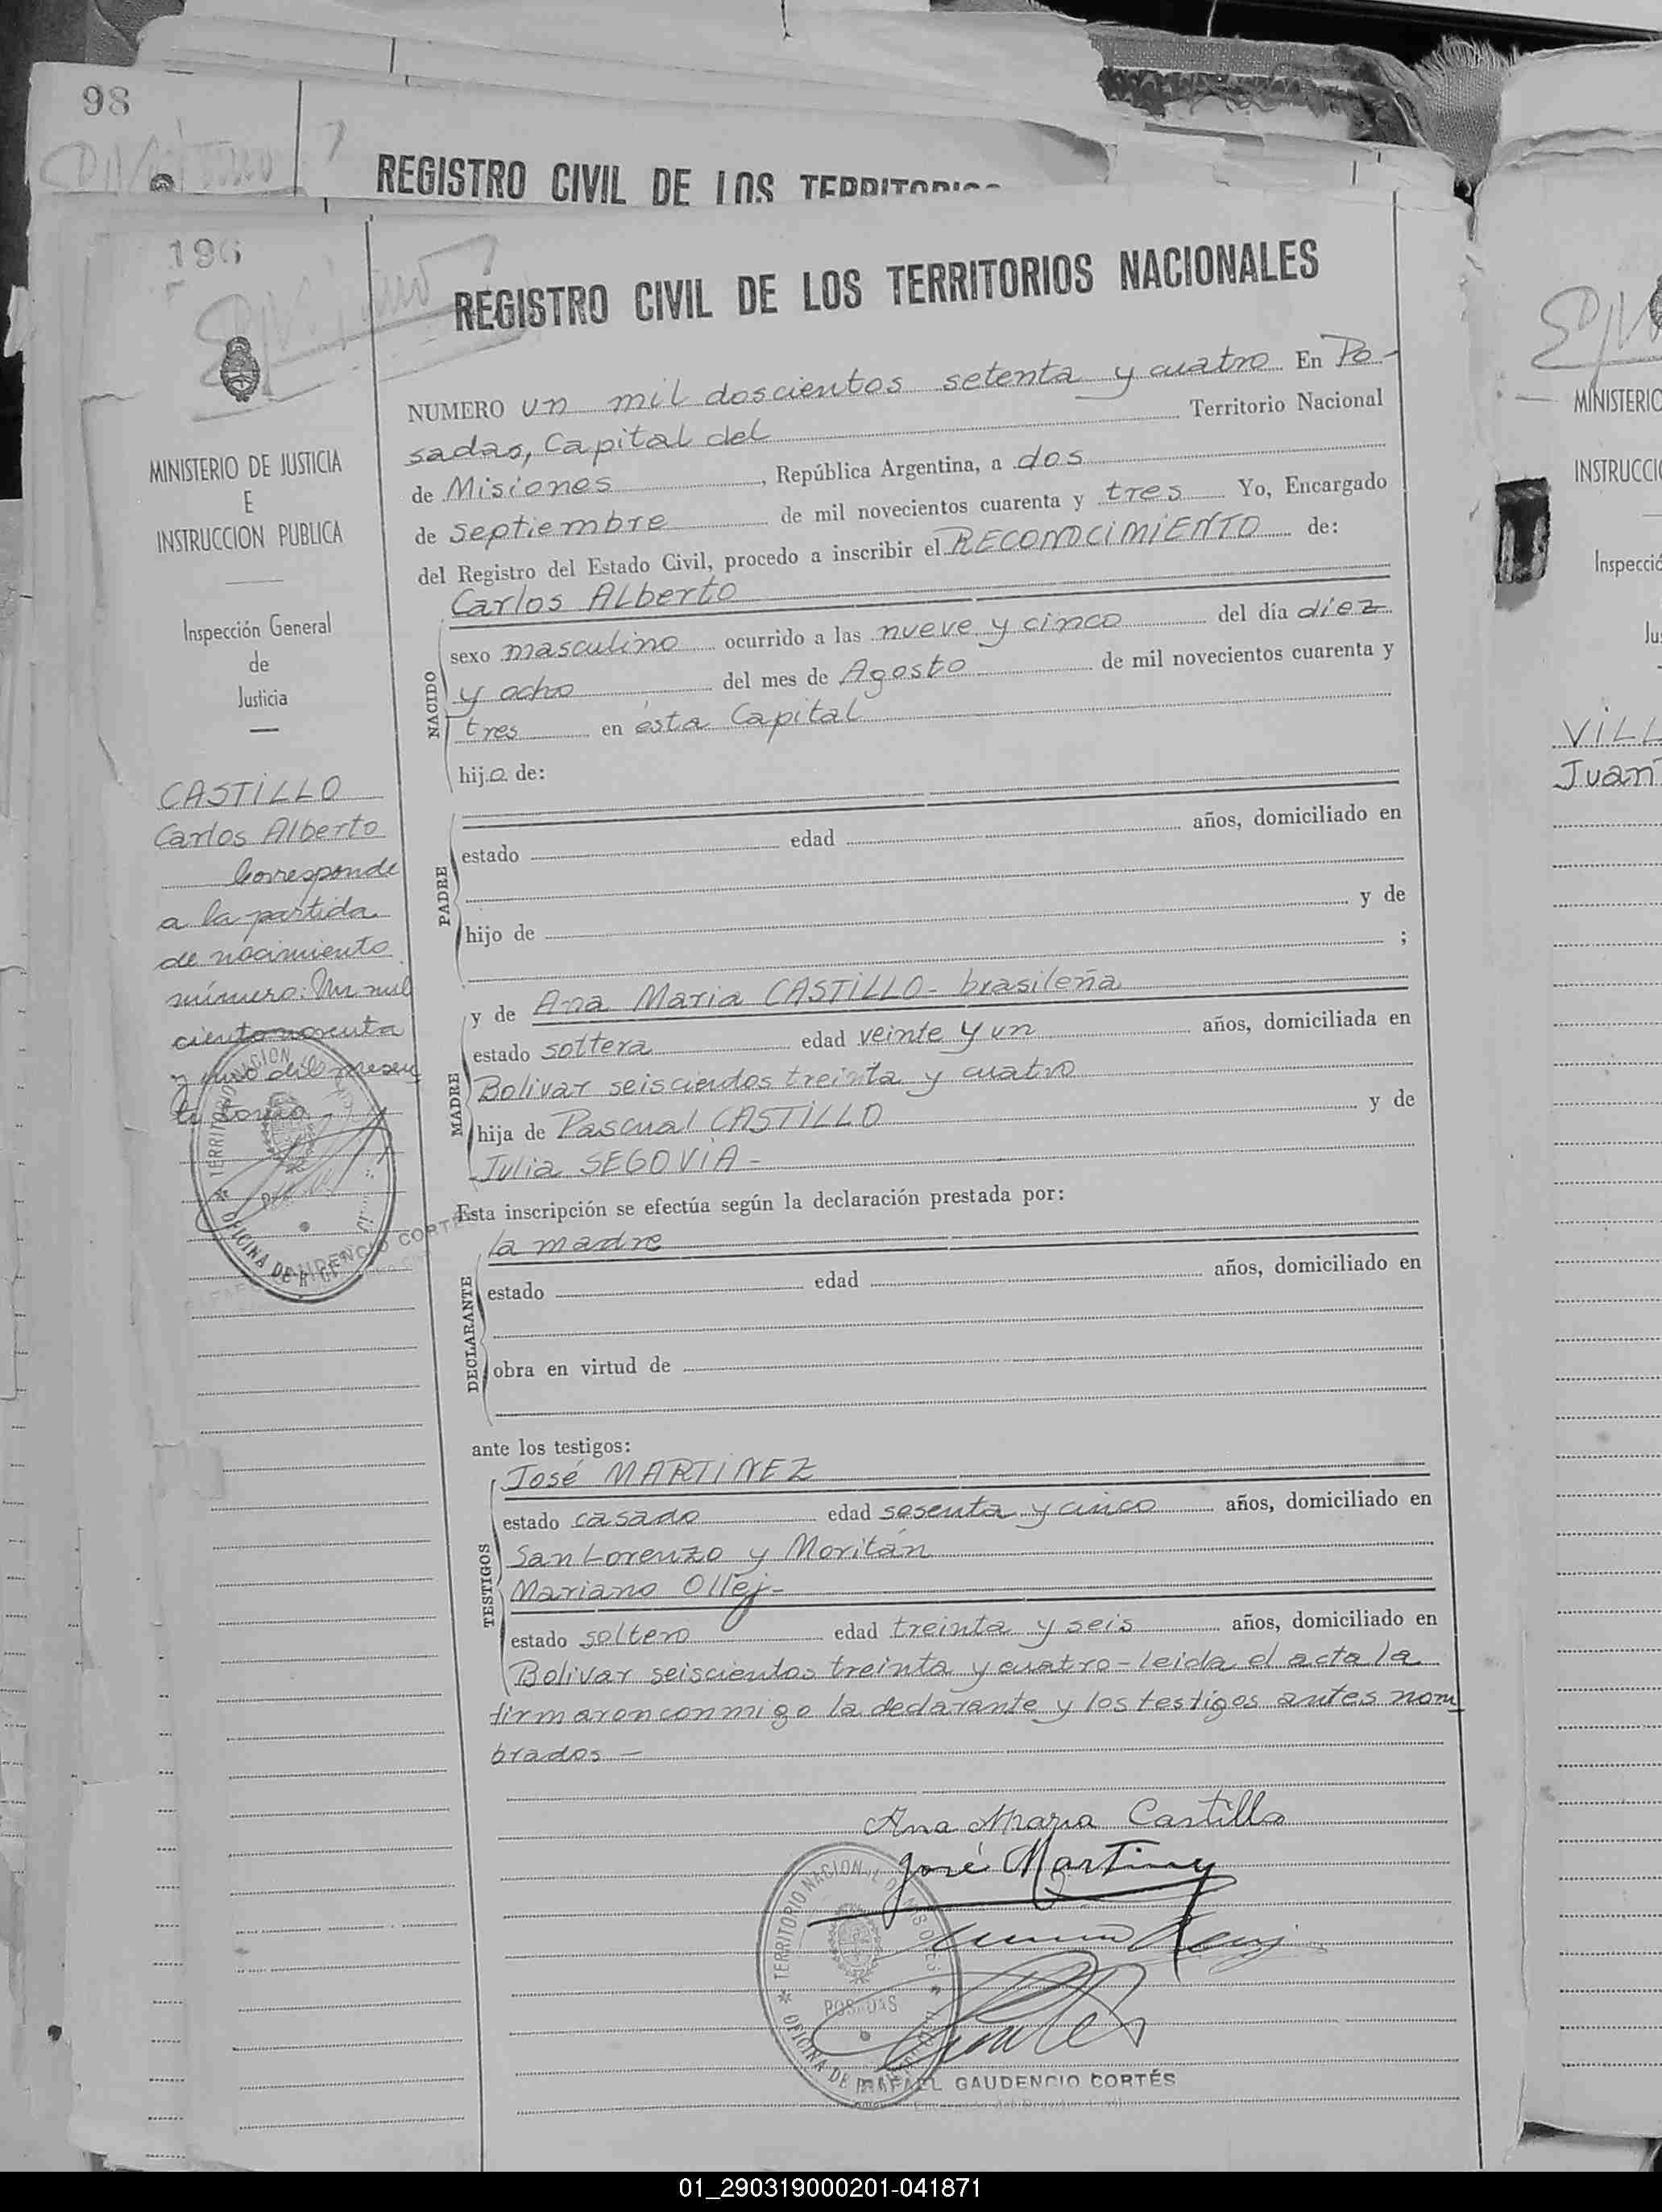 98
REGISTRO CIVIL DE LOS TERRITORIOS
196
REGISTRO CIVIL DE LOS TERRITORIOS NACIONALES
MINISTERIO DE JUSTICIA
E
INSTRUCCION PUBLICA
Inspección General
de
Justicia
CASTILLO
Carlos Alberto
Corresponde
a la partida
de nacimiento
número: Un mil
ciento noventa
y uno del presen
te tomo.-
NUMERO un mil doscientos setenta y cuatro En Po-
sadas, Capital del Territorio Nacional
de Misiones, República Argentina, a dos
de septiembre de mil novecientos cuarenta y tres Yo, Encargado
del Registro del Estado Civil, procedo a inscribir el RECONOCIMIENTO de:
NACIDO
Carlos Alberto
sexo masculino ocurrido a las nueve y cinco del día diez
y ocho del mes de Agosto de mil novecientos cuarenta y
tres en ésta Capital
hijo de:
PADRE
estado edad años, domiciliado en
hijo de y de
;
MADRE
y de Ana Maria CASTILLO - brasileña
estado soltera edad veinte y un años, domiciliada en
Bolivar seiscientos treinta y cuatro
hija de Pascual CASTILLO y de
Julia SEGOVIA -
Esta inscripción se efectúa según la declaración prestada por:
DECLARANTE
la madre
estado edad años, domiciliado en
obra en virtud de
ante los testigos:
TESTIGOS
José MARTINEZ
estado casado edad sesenta y cinco años, domiciliado en
San Lorenzo y Moritán
Mariano Ollej-
estado soltero edad treinta y seis años, domiciliado en
Bolivar seiscientos treinta y cuatro - leida el acta la
firmaron conmigo la declarante y los testigos antes nom
brados -
Ana Maria Castillo
José Martinez
TERRITORIO NACIONAL DE MISIONES
POSADAS
OFICINA DE
RAFAEL GAUDENCIO CORTÉS
MINISTERIO
INSTRUCCI
Inspecció
Jus
VILL
Juan
01_290319000201-041871